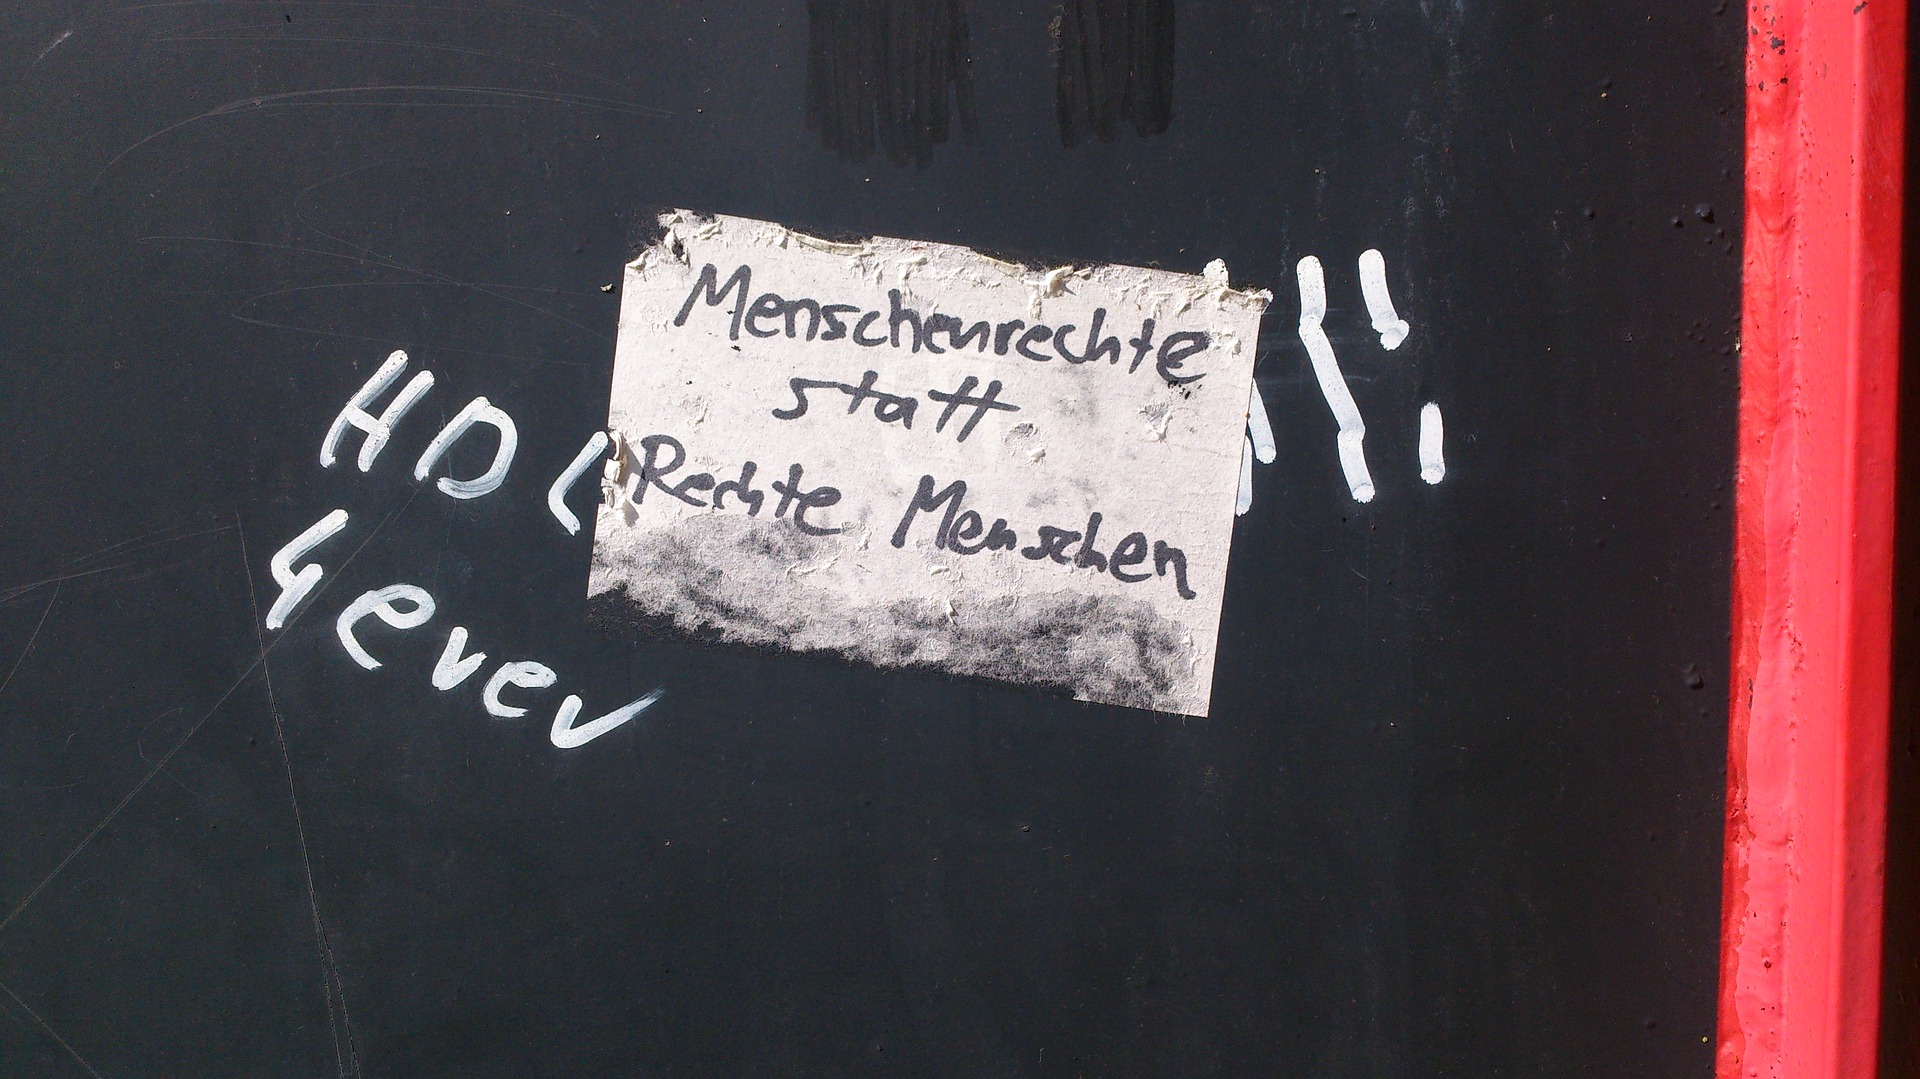 Menschenrechte
statt
Rechte Menschen
HDL
4ever